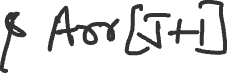 & Arr[J+1]